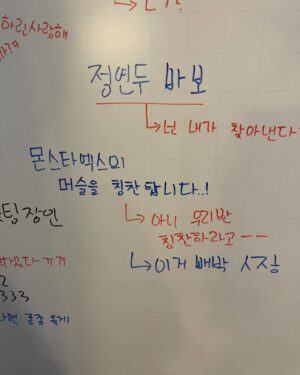 하린사랑해
정연두 바보
넌 내가 찾아낸다
몬스타엑스의
머슬을 칭찬합니다.!
팅장인
아니 우리반
칭찬하라고 ㅡㅡ
이거 배박
2
333